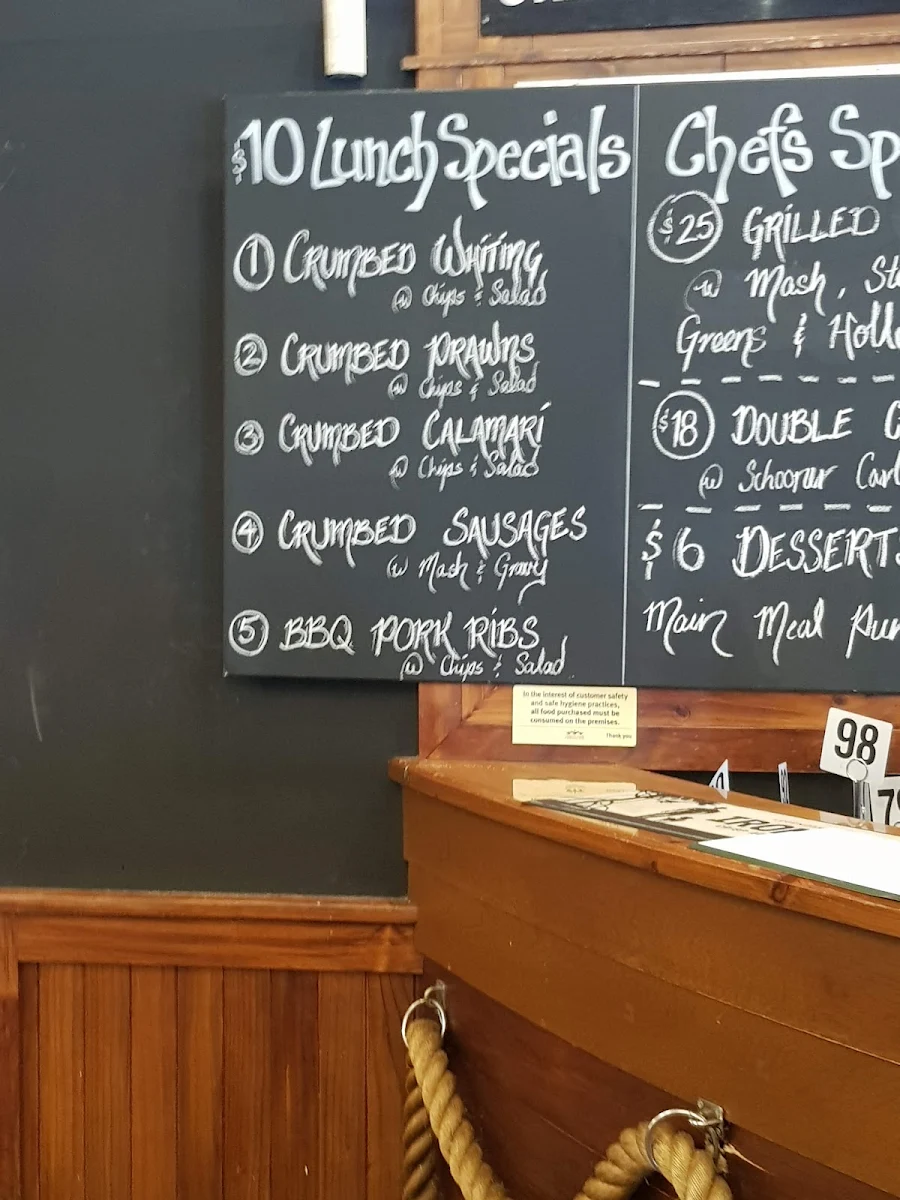 $10 Lunch Specials
① CRUMBED WHITING
@ Chips & Salad
② CRUMBED PRAWNS
@ Chips & Salad
③ CRUMBED CALAMARI
@ Chips & Salad
④ CRUMBED SAUSAGES
w Mash & Gravy
⑤ BBQ PORK RIBS
w Chips & Salad
Chefs Sp
$25 GRILLED
w Mash, Ste
Greens & Holl
$18 DOUBLE C
w Schooner Carl
$6 DESSERTS
Main Meal Pur
In the interest of customer safety
and safe hygiene practices,
all food purchased must be
consumed on the premises.
Thank you
98